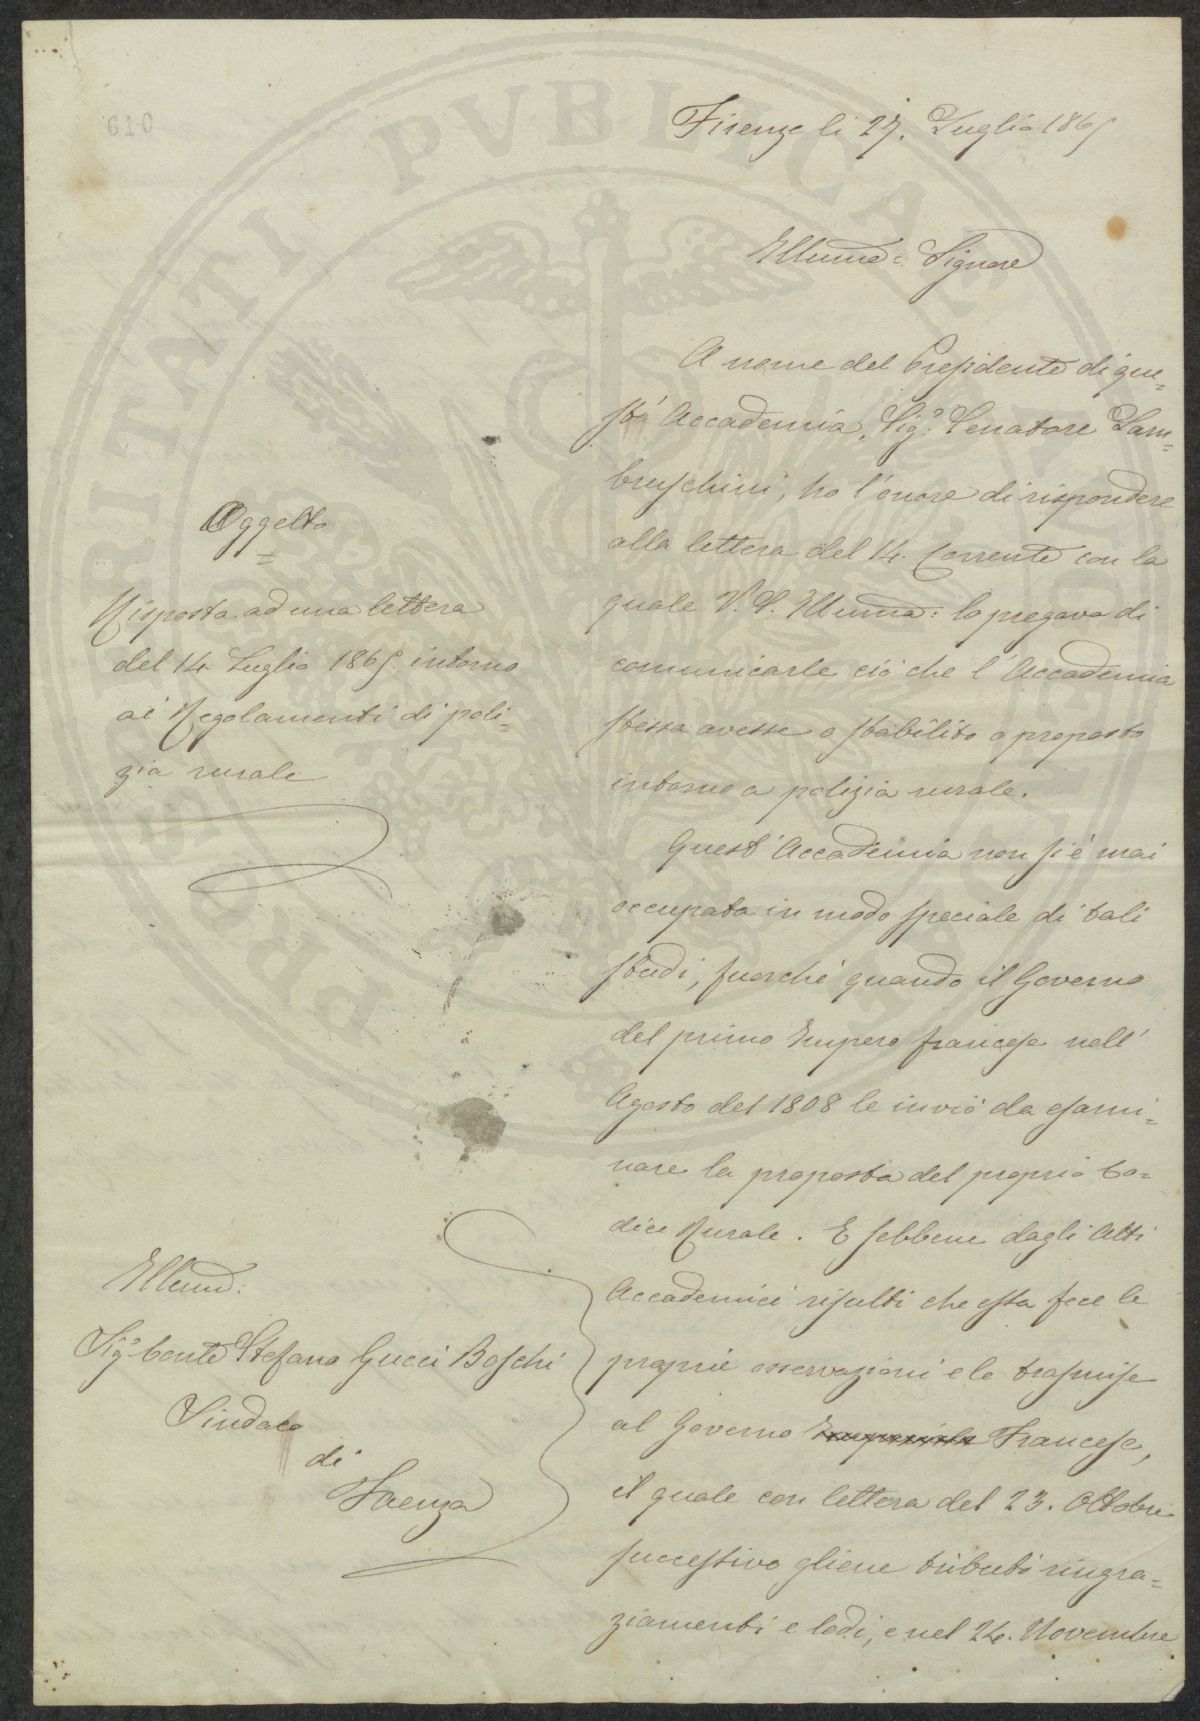 610
Firenze li 27. Luglio 1865
Illumo: Signore
A nome del Presidente di que=
sta Accademia, Sigr. Senatore Lam=
bruschini, ho l'onore di rispondere
alla lettera del 14. Corrente con la
quale V. S. Illuma: lo pregava di
comunicarle ciò che l'Accademia
stessa avesse o stabilito o proposto
intorno a polizia rurale.
Quest'Accademia non si è mai
occupata in modo speciale di tali
studi, fuorchè quando il Governo
del primo Impero francese nell'
Agosto del 1808 le inviò da esami=
nare la proposta del proprio Co=
dice Rurale. E sebbene dagli Atti
Accademici risulti che essa fece le
proprie osservazioni e le trasmise
al Governo Imperiale Francese,
il quale con lettera del 23. Ottobre
successivo gliene tributò ringra=
ziamenti e lodi, e nel 24. Novembre
Oggetto
=
Risposta ad una lettera
del 14 Luglio 1865. intorno
ai Regolamenti di poli=
zia rurale
Illmo:
Sigr Conte Stefano Gucci Boschi
Sindaco
di
Faenza
PROSPERITATI PVBLICAE AVGENDAE